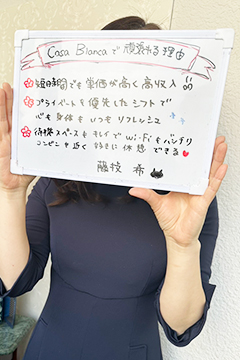 Casa Biancaで頑張れる理由
短時間でも単価が高く高収入
プライベートを優先したシフトで
心も身体もいつもリフレッシュ
待機スペースもキレイでWi-Fiもバッチリ
コンビニも近く好きに休憩できる
藤枝 希